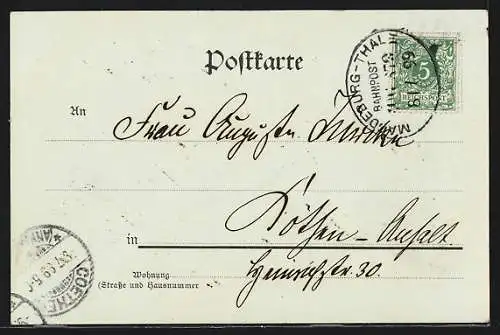 Postkarte
MAGDEBURG-THALE
BAHNPOST
5
REICHSPOST
An
Frau Auguste
in Cöthen-Anhalt
Wohnung
(Straße und Hausnummer)
Heinrichstr. 30.
COETHEN